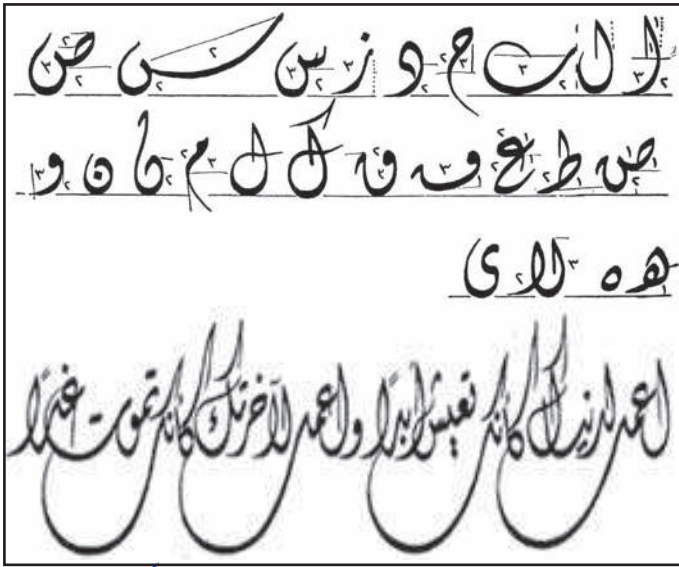 لا ا ب ح د ر س س ص
ص ط ع ف ق ك ل م ن ن و
ه ه لا ى
اعمل لدنياك كأنك تعيش أبدًا واعمل لآخرتك كأنك تموت غدًا